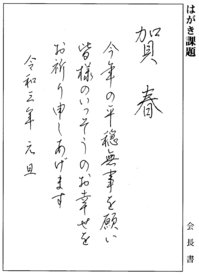 はがき課題
賀春
今年の平穏無事を願い
皆様のいっそうのお幸せを
お祈り申しあげます
令和三年 元旦
会長書